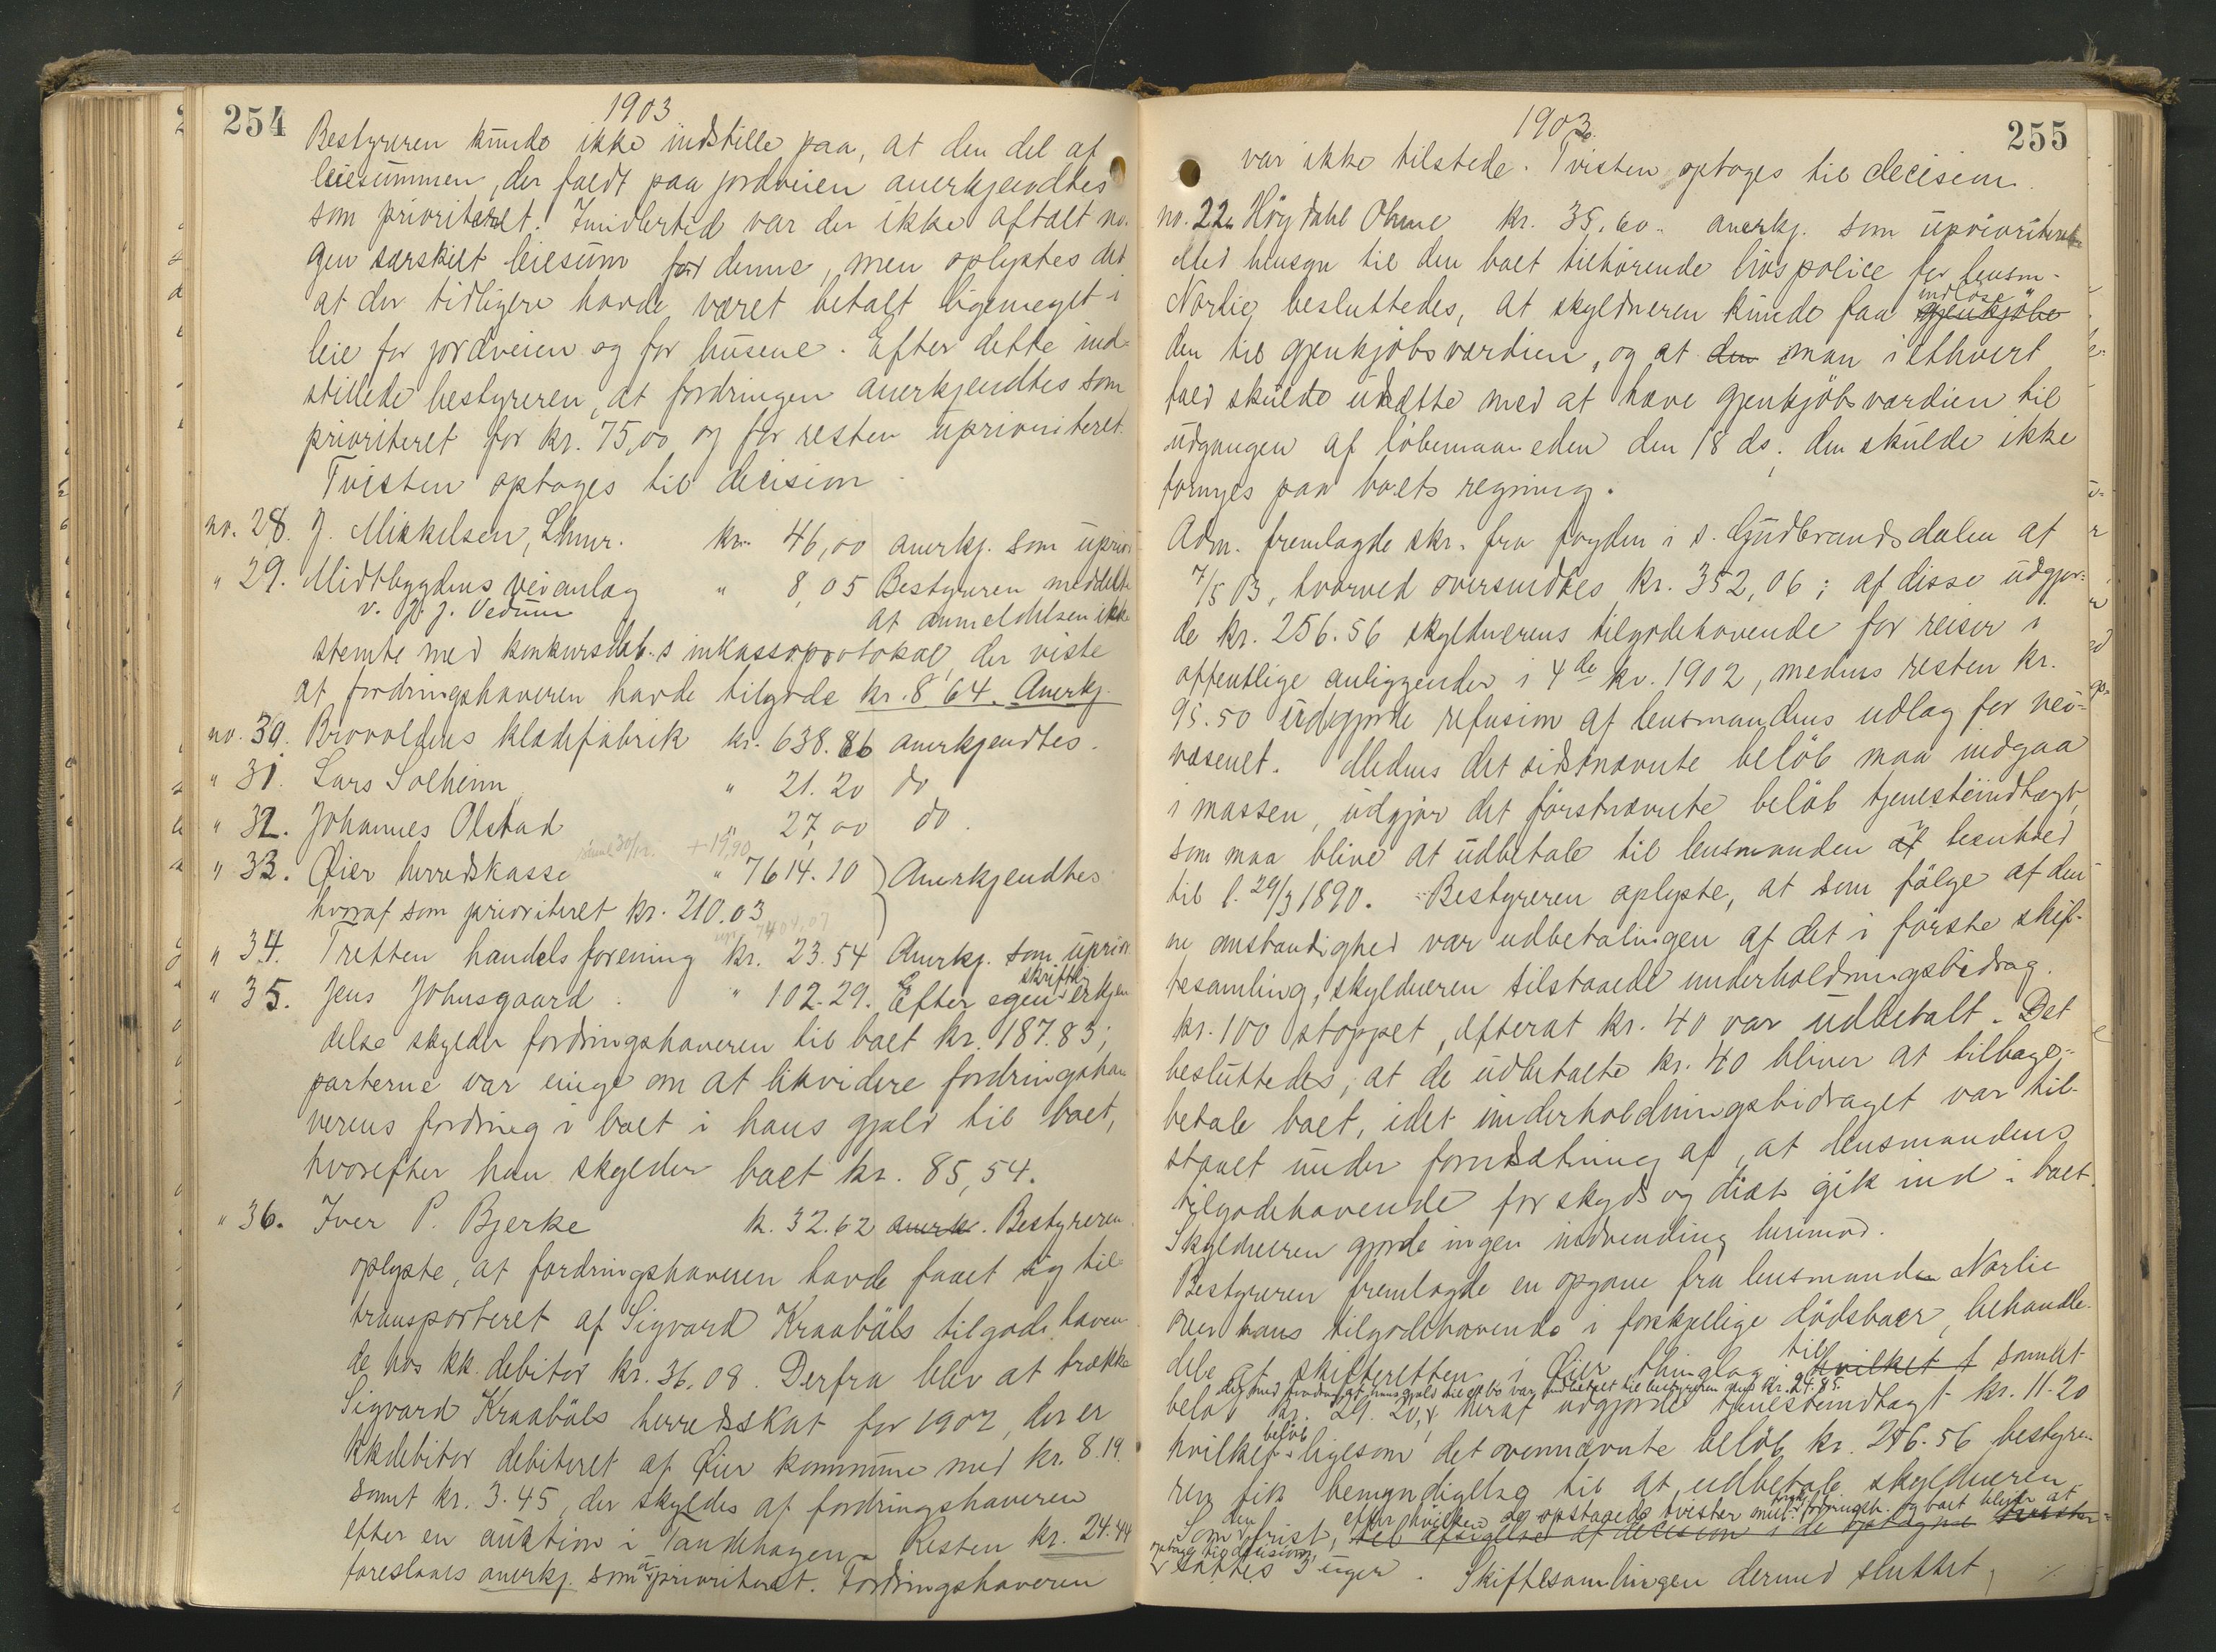 254
1903
Bestyreren kunde ikke indstille paa, at den del af
leiesummen, der faldt paa jordveien anerkjendtes
som prioriteret. Imidlertid var der ikke aftalt no-
gen særskilt leiesum for denne, men oplystes det
at der tidligere havde været betalt ligemeget i
leie for jordveien og for husene. Efter dette ind-
stillede bestyreren, at fordringen anerkjendtes som
prioriteret for kr. 75,00 og for resten uprioriteret.
Tvisten optages til decision.
no. 28. J. Mikkelsen, Lhmr. kr. 46,00 anerkj. som uprior
" 29. Midtbygdens veianlæg " 8,05 Bestyreren meddelte
v. J. Vedum at anmeldelsen ikke
stemte med konkursdeb.s inkassoprotokol, der viste
at fordringshaveren havde tilgode kr. 8,64. Anerkj.
no. 30. Brovoldens klædefabrik kr. 638.86 anerkjendtes.
" 31. Lars Solheim " 21.20 do
" 32. Johannes Olstad " 27,00 do.
+ 19,90
" 33. Øier herredskasse " 7614.10 Anerkjendtes
hvoraf som prioriteret kr. 210.03
7404,07
" 34. Tretten handelsforening kr. 23.54 Anerkj. som uprior
" 35. Jens Johnsgaard. " 102.29. Efter egen skriftl. erkjen
delse skylder fordringshaveren til boet kr. 187.83;
parterne var enige om at likvidere fordringsha
verens fordring i boet i hans gjæld til boet,
hvorefter han skylder boet kr. 85,54.
" 36. Iver P. Bjerke k. 32.62 anerk. Bestyreren
oplyste, at fordringshaveren havde faaet sig til
transporteret af Sigvard Kraabøls tilgodehaven
de hos kk. debitor kr. 36,08. Derfra blev at trække
Sigvard Kraabøls herredsskat for 1902, der er
kkdebitor debiteret af Øier kommune med kr. 8.19.
samt kr. 3.45, der skyldes af fordringshaveren
efter en auktion i Tandehagen. Resten kr. 24.44
foreslaaes anerkj. som uprioriteret. Fordringshaveren
255
1903.
var ikke tilstede. Tvisten optages til decision.
no. 22. Høgdahl Ohme kr. 35,60. anerkj. som uprioriteret
Med hensyn til den boet tilhørende livspolice for lensm.
Norlie besluttedes, at skyldneren kunde faa gjenkjøbe indløse
den til gjenkjøbsværdien, og at den man i ethvert
fald skulde udsætte med at hæve gjenkjøbsværdien til
udgangen af løbemaaneden den 18 ds; den skulde ikke
fornyes paa boets regning.
Adm. fremlagde skr. fra fogden i s. Gudbrandsdalen af
7/5 03, hvorved oversendtes kr. 352,06; af disse udgjor-
de kr. 256.56 skyldnerens tilgodehavende for reiser i
offentlige anliggender i 4de kv. 1902, medens resten kr.
95.50 udgjorde refusion af lensmandens udlæg for vei-
væsenet. Medens det sidstnævnte beløb maa indgaa
i massen, udgjør det førstnævnte beløb tjenesteindtægt,
som maa blive at udbetale til lensmanden i henhold
til l. 29/3 1890. Bestyreren oplyste, at som følge af den-
ne omstændighed var udbetalingen af det i første skif-
tesamling, skyldneren tilstaaede underholdningsbidrag.
kr. 100 stoppet, efterat kr. 40 var udbetalt. Det
besluttedes, at de udbetalte kr. 40 bliver at tilbage-
betale boet, idet underholdningsbidraget var til-
staaet under forudsætning af, at lensmandens
tilgodehavende for skyds og diæt gik ind i boet.
Skyldneren gjorde ingen indvending herimod.
Bestyreren fremlagde en opgave fra lensmanden Norlie
over hans tilgodehavende i forskjellige dødsboer, behandle-
dele af skifteretten i Øier thinglag, til hvilket samlet
der med fradrag af hans gjæld til et bo var indbetalt til bestyreren med kr. 24.85.
beløb kr. 29.20, heraf udgjorde tjenesteindtægt kr. 11.20
hvilket beløb ligesom det ovennævnte beløb kr. 256.56 bestyre-
ren fik bemyndigelse til at udbetale skyldneren.
efter hvilken de opstaaede tvister mell. fordringsh. og boet bliver at
Som den frist, til afsigelse af decision i de optagne tvister
optage til decision,
sattes 3 uger. Skiftesamlingen dermed sluttet,